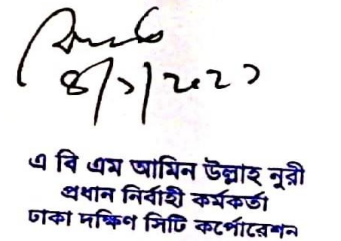 ৪/১/২০২১
এ বি এম আমিন উল্লাহ নূরী
প্রধান নির্বাহী কর্মকর্তা
ঢাকা দক্ষিণ সিটি কর্পোরেশন